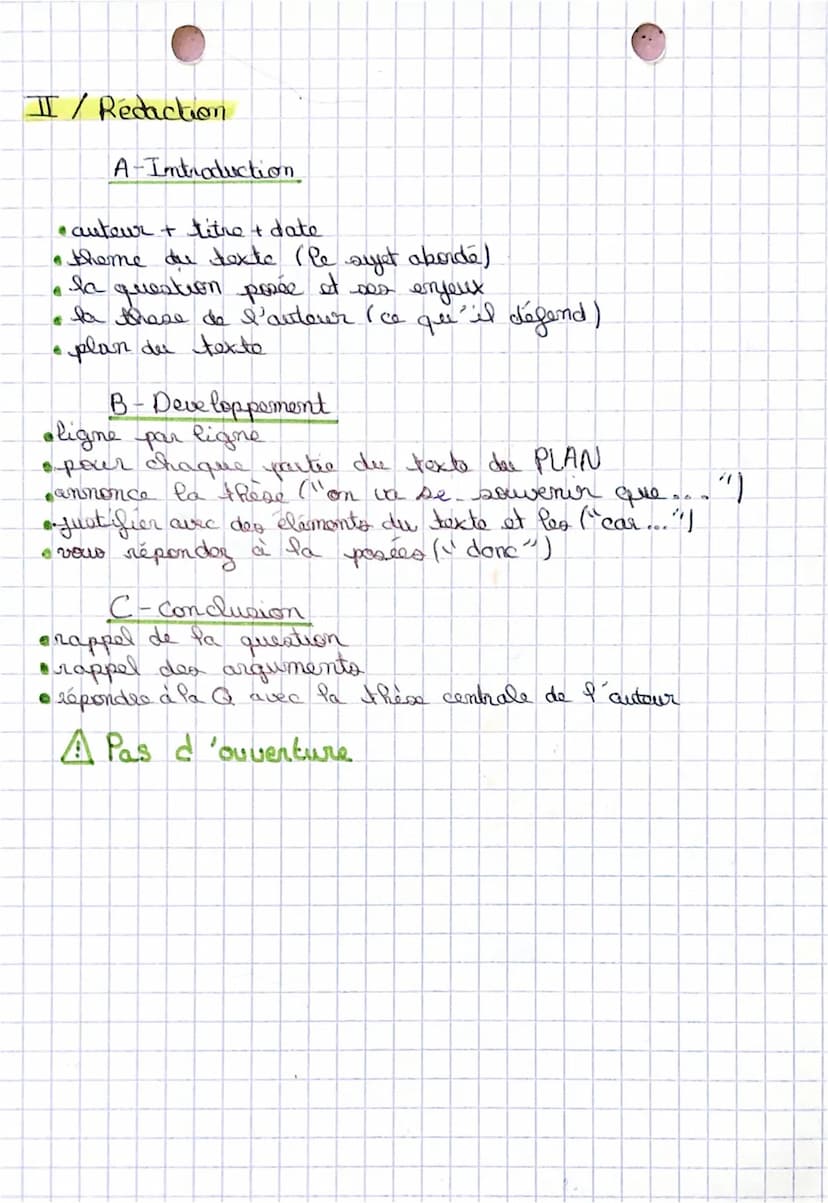 II / Rédaction
A - Introduction
• auteur + titre + date
• theme du texte (le sujet abordé)
• la question posée et ses enjeux
• la these de l'auteur (ce qu'il défend)
• plan du texte
B - Developpement
• ligne par ligne
• pour chaque partie du texte du PLAN
• annonce la thèse ("on va se souvenir que... ")
• justifier avec des éléments du texte et les ("car...")
• vous répondez à la posées (" donc")
C - Conclusion
• rappel de la question
• rappel des arguments
• répondre à la Q avec la thèse centrale de l'auteur
⚠ Pas d'ouverture